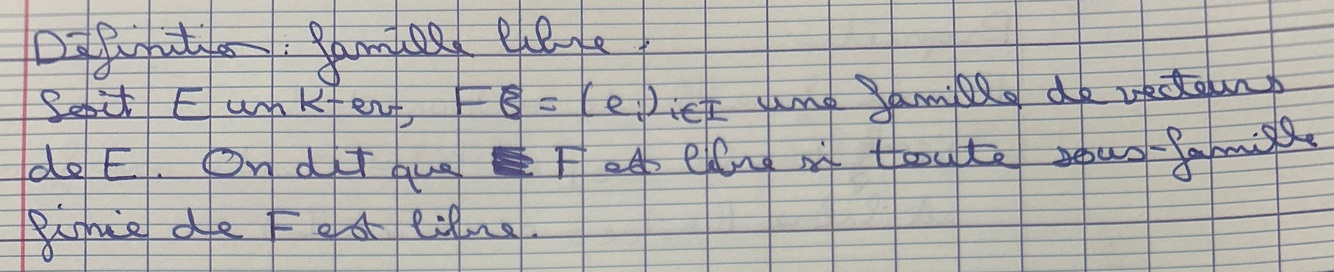 Définition : famille libre.
Soit E un K-ev, F = (ei)i∈I une famille de vecteurs
de E. On dit que F est libre si toute sous-famille
finie de F est libre.